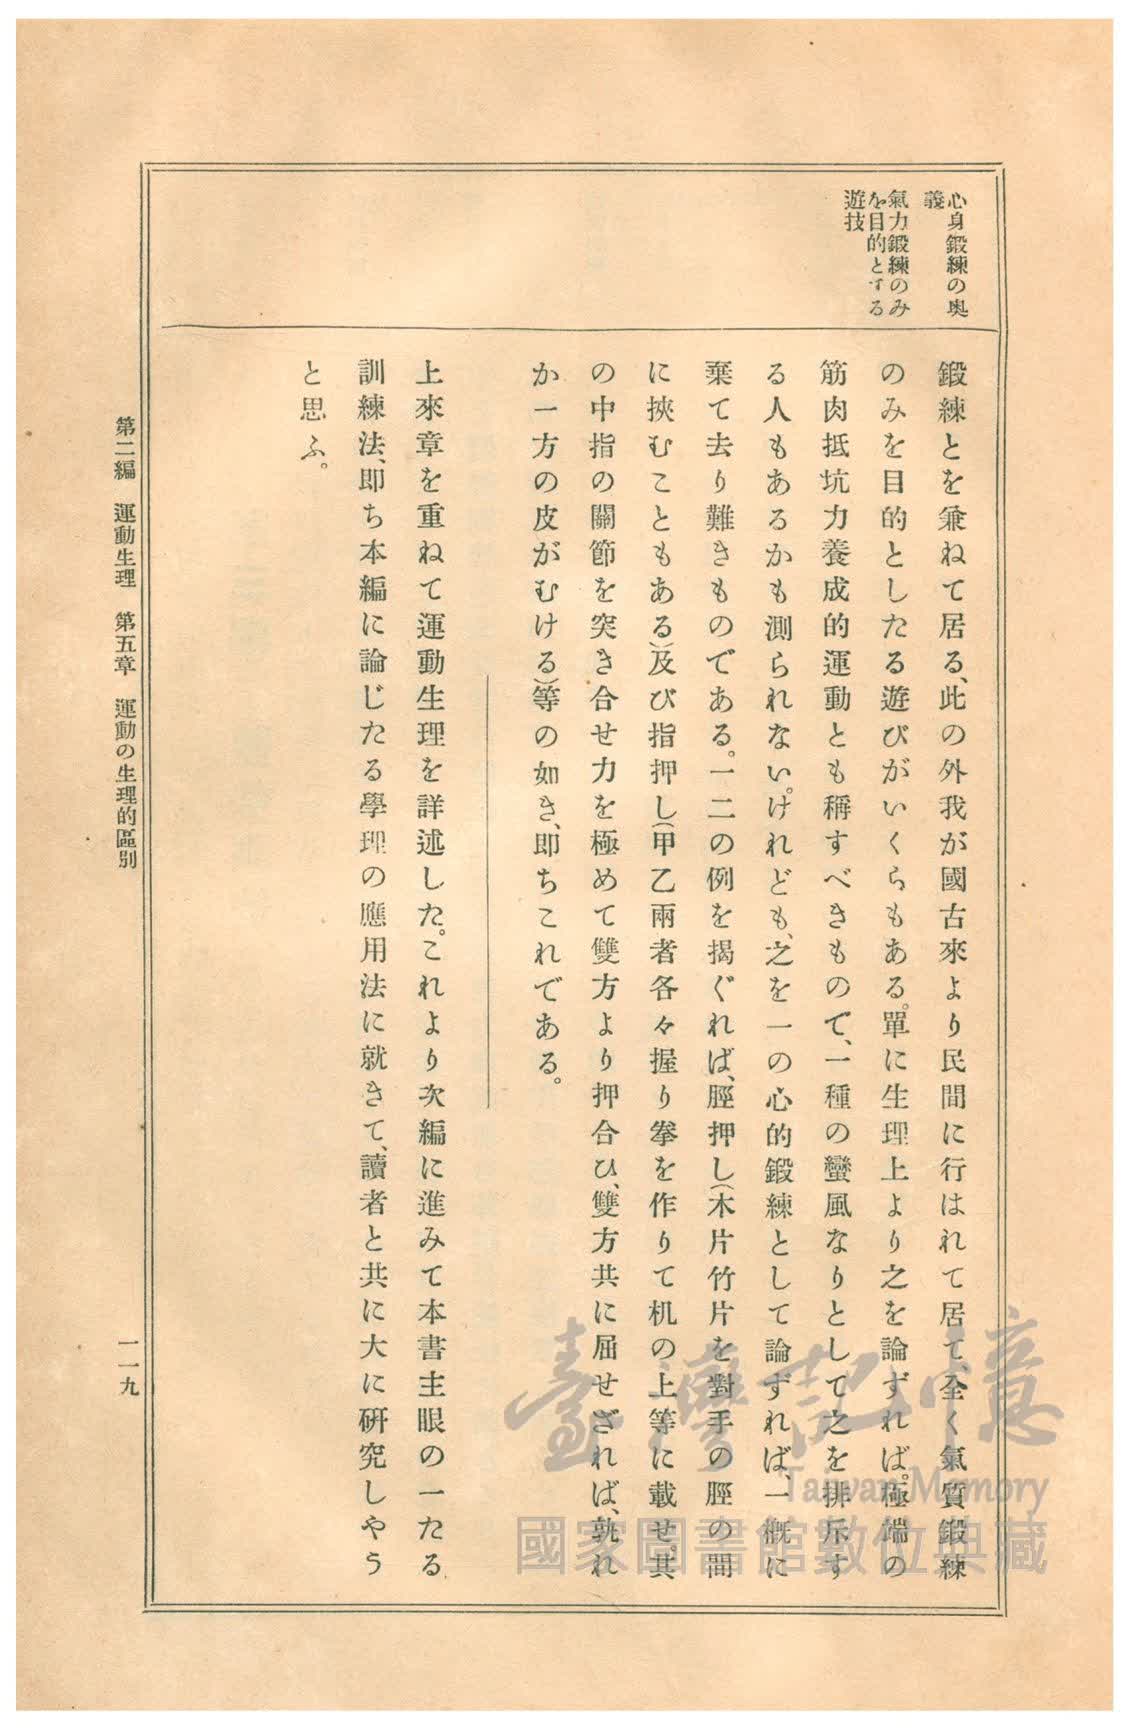 心身鍛練の奥
義
氣力鍛練のみ
を目的とする
遊技
鍛練とを兼ねて居る、此の外我が國古來より民間に行はれて居て、全く氣質鍛練
のみを目的としたる遊びがいくらもある。單に生理上より之を論ずれば。極端の
筋肉抵坑力養成的運動とも稱すべきもので、一種の蠻風なりとして之を排斥す
る人もあるかも測られない。けれども、之を一の心的鍛練として論ずれば、一概に
棄て去り難きものである。一二の例を揭ぐれば、脛押し(木片竹片を對手の脛の間
に挾むこともある)及び指押し(甲乙兩者各々握り拳を作りて机の上等に載せ。其
の中指の關節を突き合せ力を極めて雙方より押合ひ、雙方共に屈せざれば、孰れ
か一方の皮がむける)等の如き、卽ちこれである。
上來章を重ねて運動生理を詳述した。これより次編に進みて本書主眼の一たる
訓練法、卽ち本編に論じたる學理の應用法に就きて、讀者と共に大に硏究しやう
と思ふ。
第二編 運動生理 第五章 運動の生理的區別
一一九
臺灣記憶
Taiwan Memory
國家圖書館數位典藏